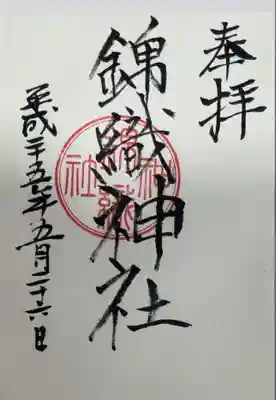 奉拝
錦織神社
錦織神社
平成二十五年五月二十六日